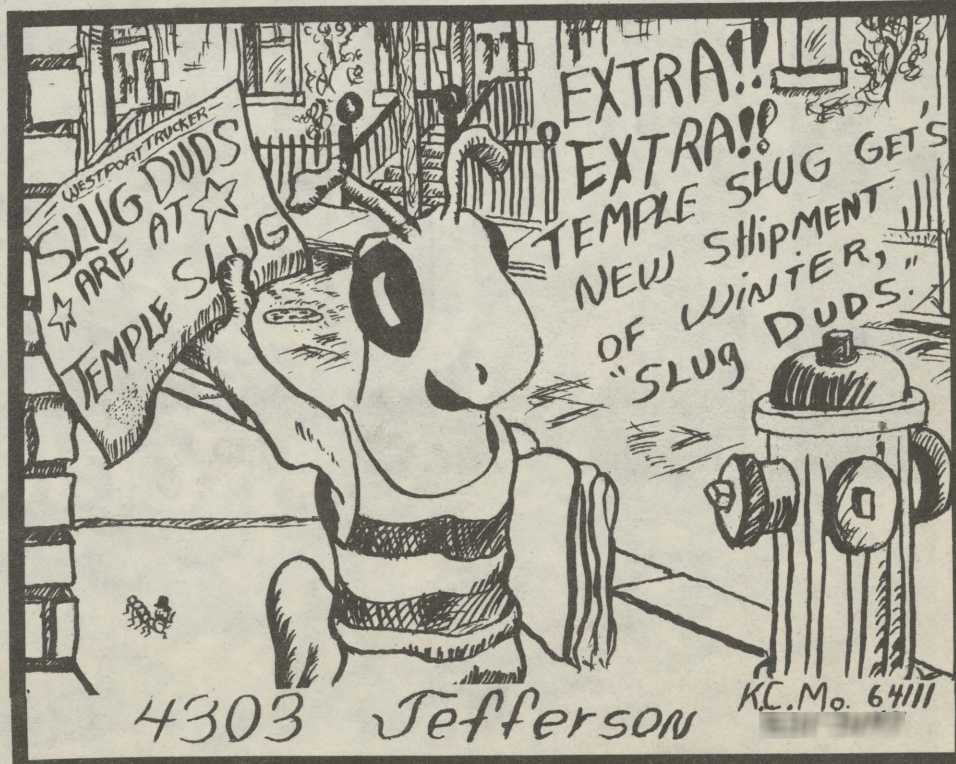 WESTPORT TRUCKER
SLUG DUDS
ARE AT
TEMPLE SLUG
EXTRA!!
EXTRA!!
TEMPLE SLUG GET'S
NEW SHIPMENT
OF WINTER,
"SLUG DUDS."
4303 Jefferson
K.C. Mo. 64111